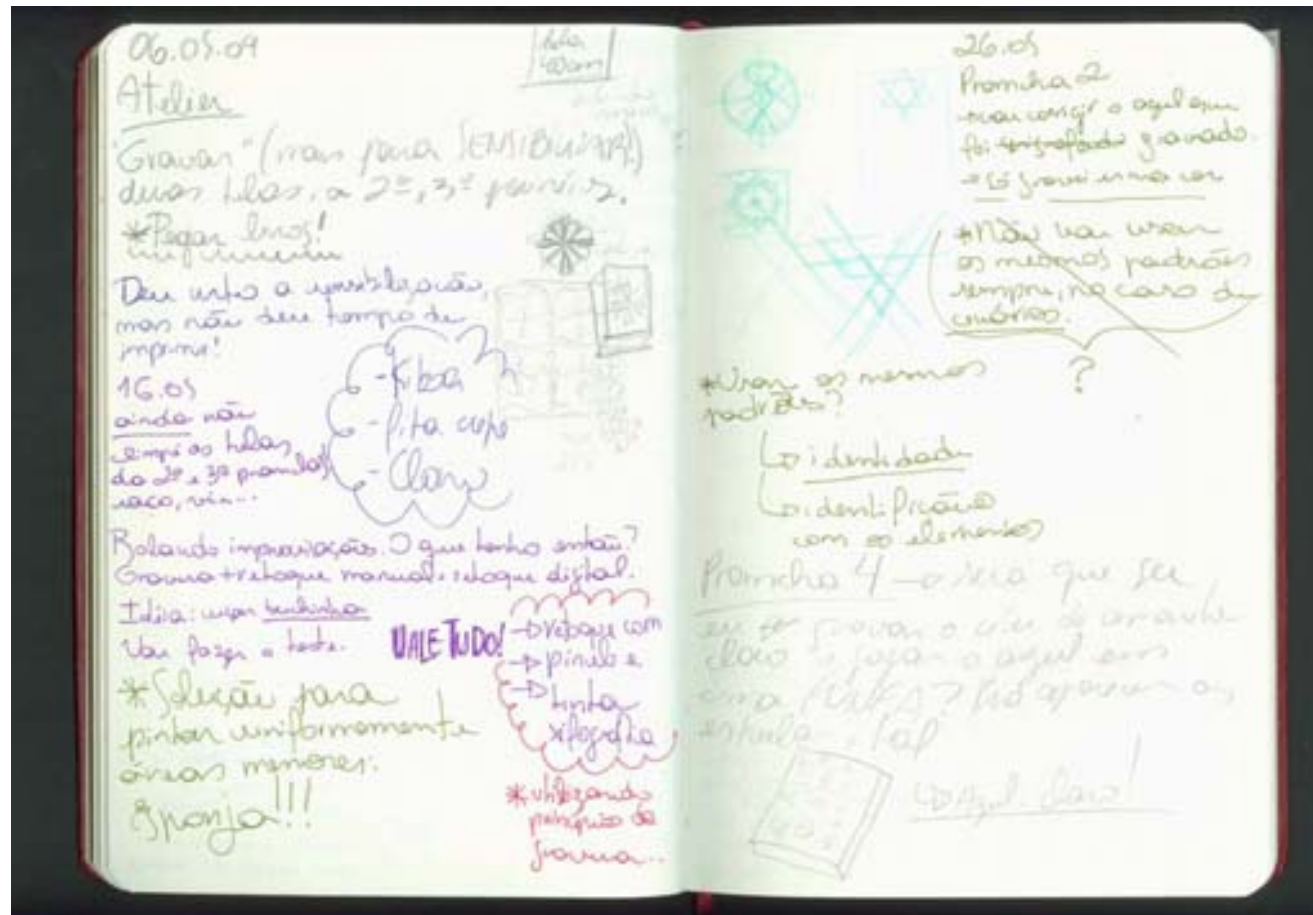 06.05.09
Atelier
"Gravar" (mais para SENSIBILIZAR!)
duas telas, a 2ª, 3ª
*Pegar
Deu certo a sensibilização,
mas não deu tempo de
imprimir!
16.05
ainda não
limpei as telas
da 2ª e 3ª prancha,
saco, viu...
-
- fita crepe
-
Rolando improvisações. O que tenho então?
Gravura+retoque manual+retoque digital.
Idéia: usar
Vou fazer o teste.
VALE TUDO!
retoque com
pincel e
tinta
xilografia
*Solução para
pintar uniformemente
áreas menores:
Esponja!!!
*utilizando
pesquisa da
gravura...
26.05
Prancha 2
vou corrigir o azul que
foi serigrafado gravado.
só gravei uma cor
*Não vou usar
os mesmos padrões
sempre, no caso de
cenários.
?
*Usar os mesmos
padrões?
identidade
identificação
com os elementos
Prancha 4 será que se
eu gravar o céu de amarelo
claro e jogar o azul em
uma aparecem as
estrelas e tal
Azul claro!